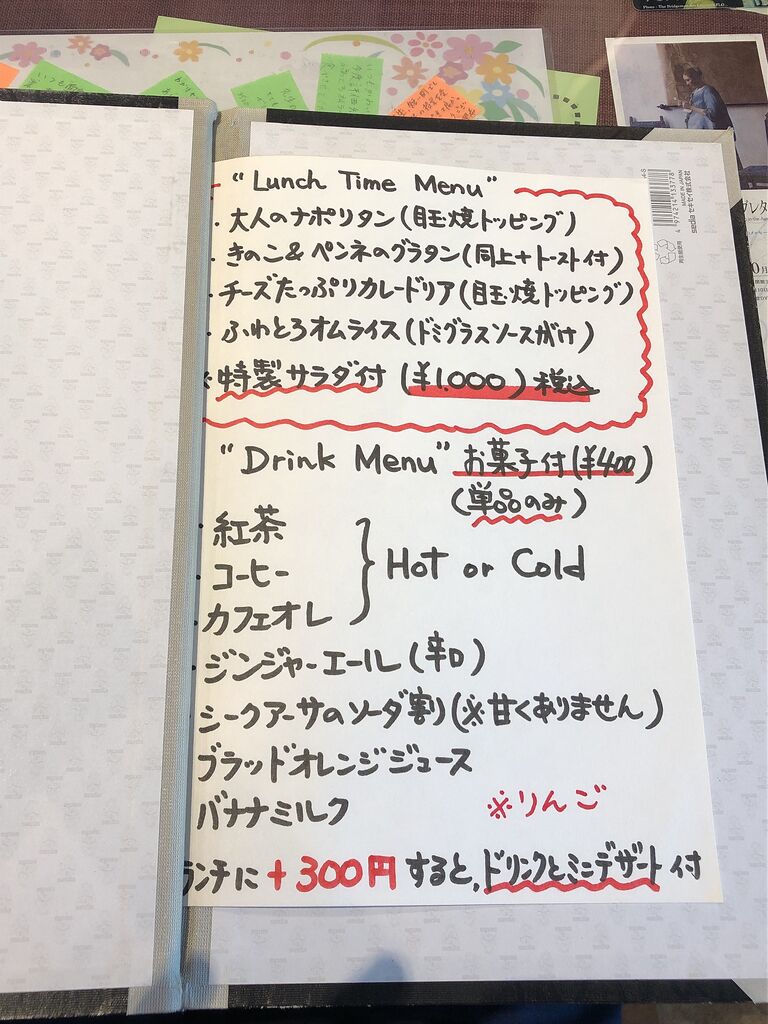 "Lunch Time Menu"
・大人のナポリタン(目玉焼トッピング)
・きのこ&ペンネのグラタン(同上+トースト付)
・チーズたっぷりカレードリア(目玉焼トッピング)
・ふわとろオムライス(ドミグラスソースがけ)
※特製サラダ付(¥1.000)税込
"Drink Menu" お菓子付(¥400)
(単品のみ)
・紅茶
・コーヒー
・カフェオレ
Hot or Cold
・ジンジャーエール(辛口)
・シークアーサのソーダ割(※甘くありません)
ブラッドオレンジジュース
バナナミルク
※りんご
ランチに+300円すると,ドリンクとミニデザート付
MADE IN JAPAN
4 974214 133778
sedia セキセイ株式会社